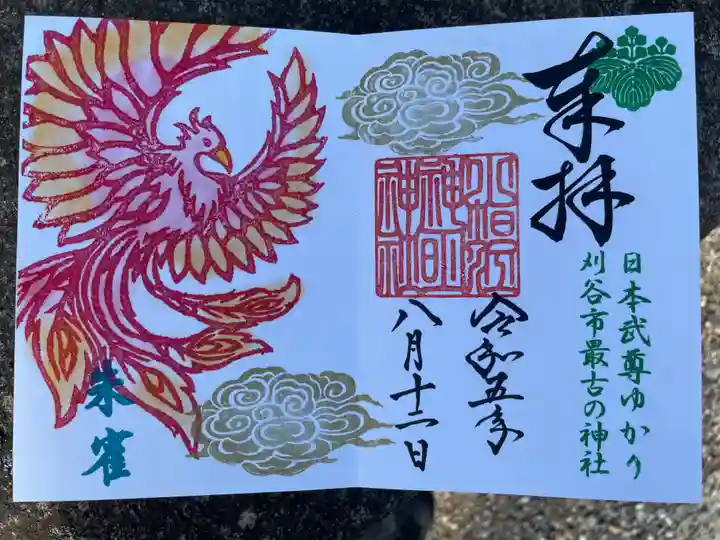 奉拝
日本武尊ゆかり
刈谷市最古の神社
小垣江
神明
神社
令和五年
八月十二日
朱雀